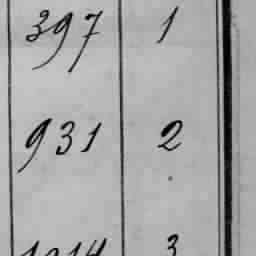 397 1
931 2
3